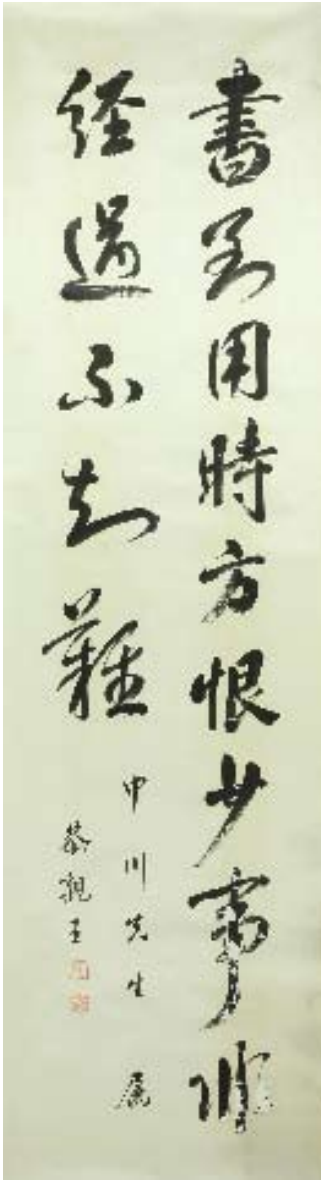 書到用時方恨少事非
經過不知難
中川先生 属
恭親王